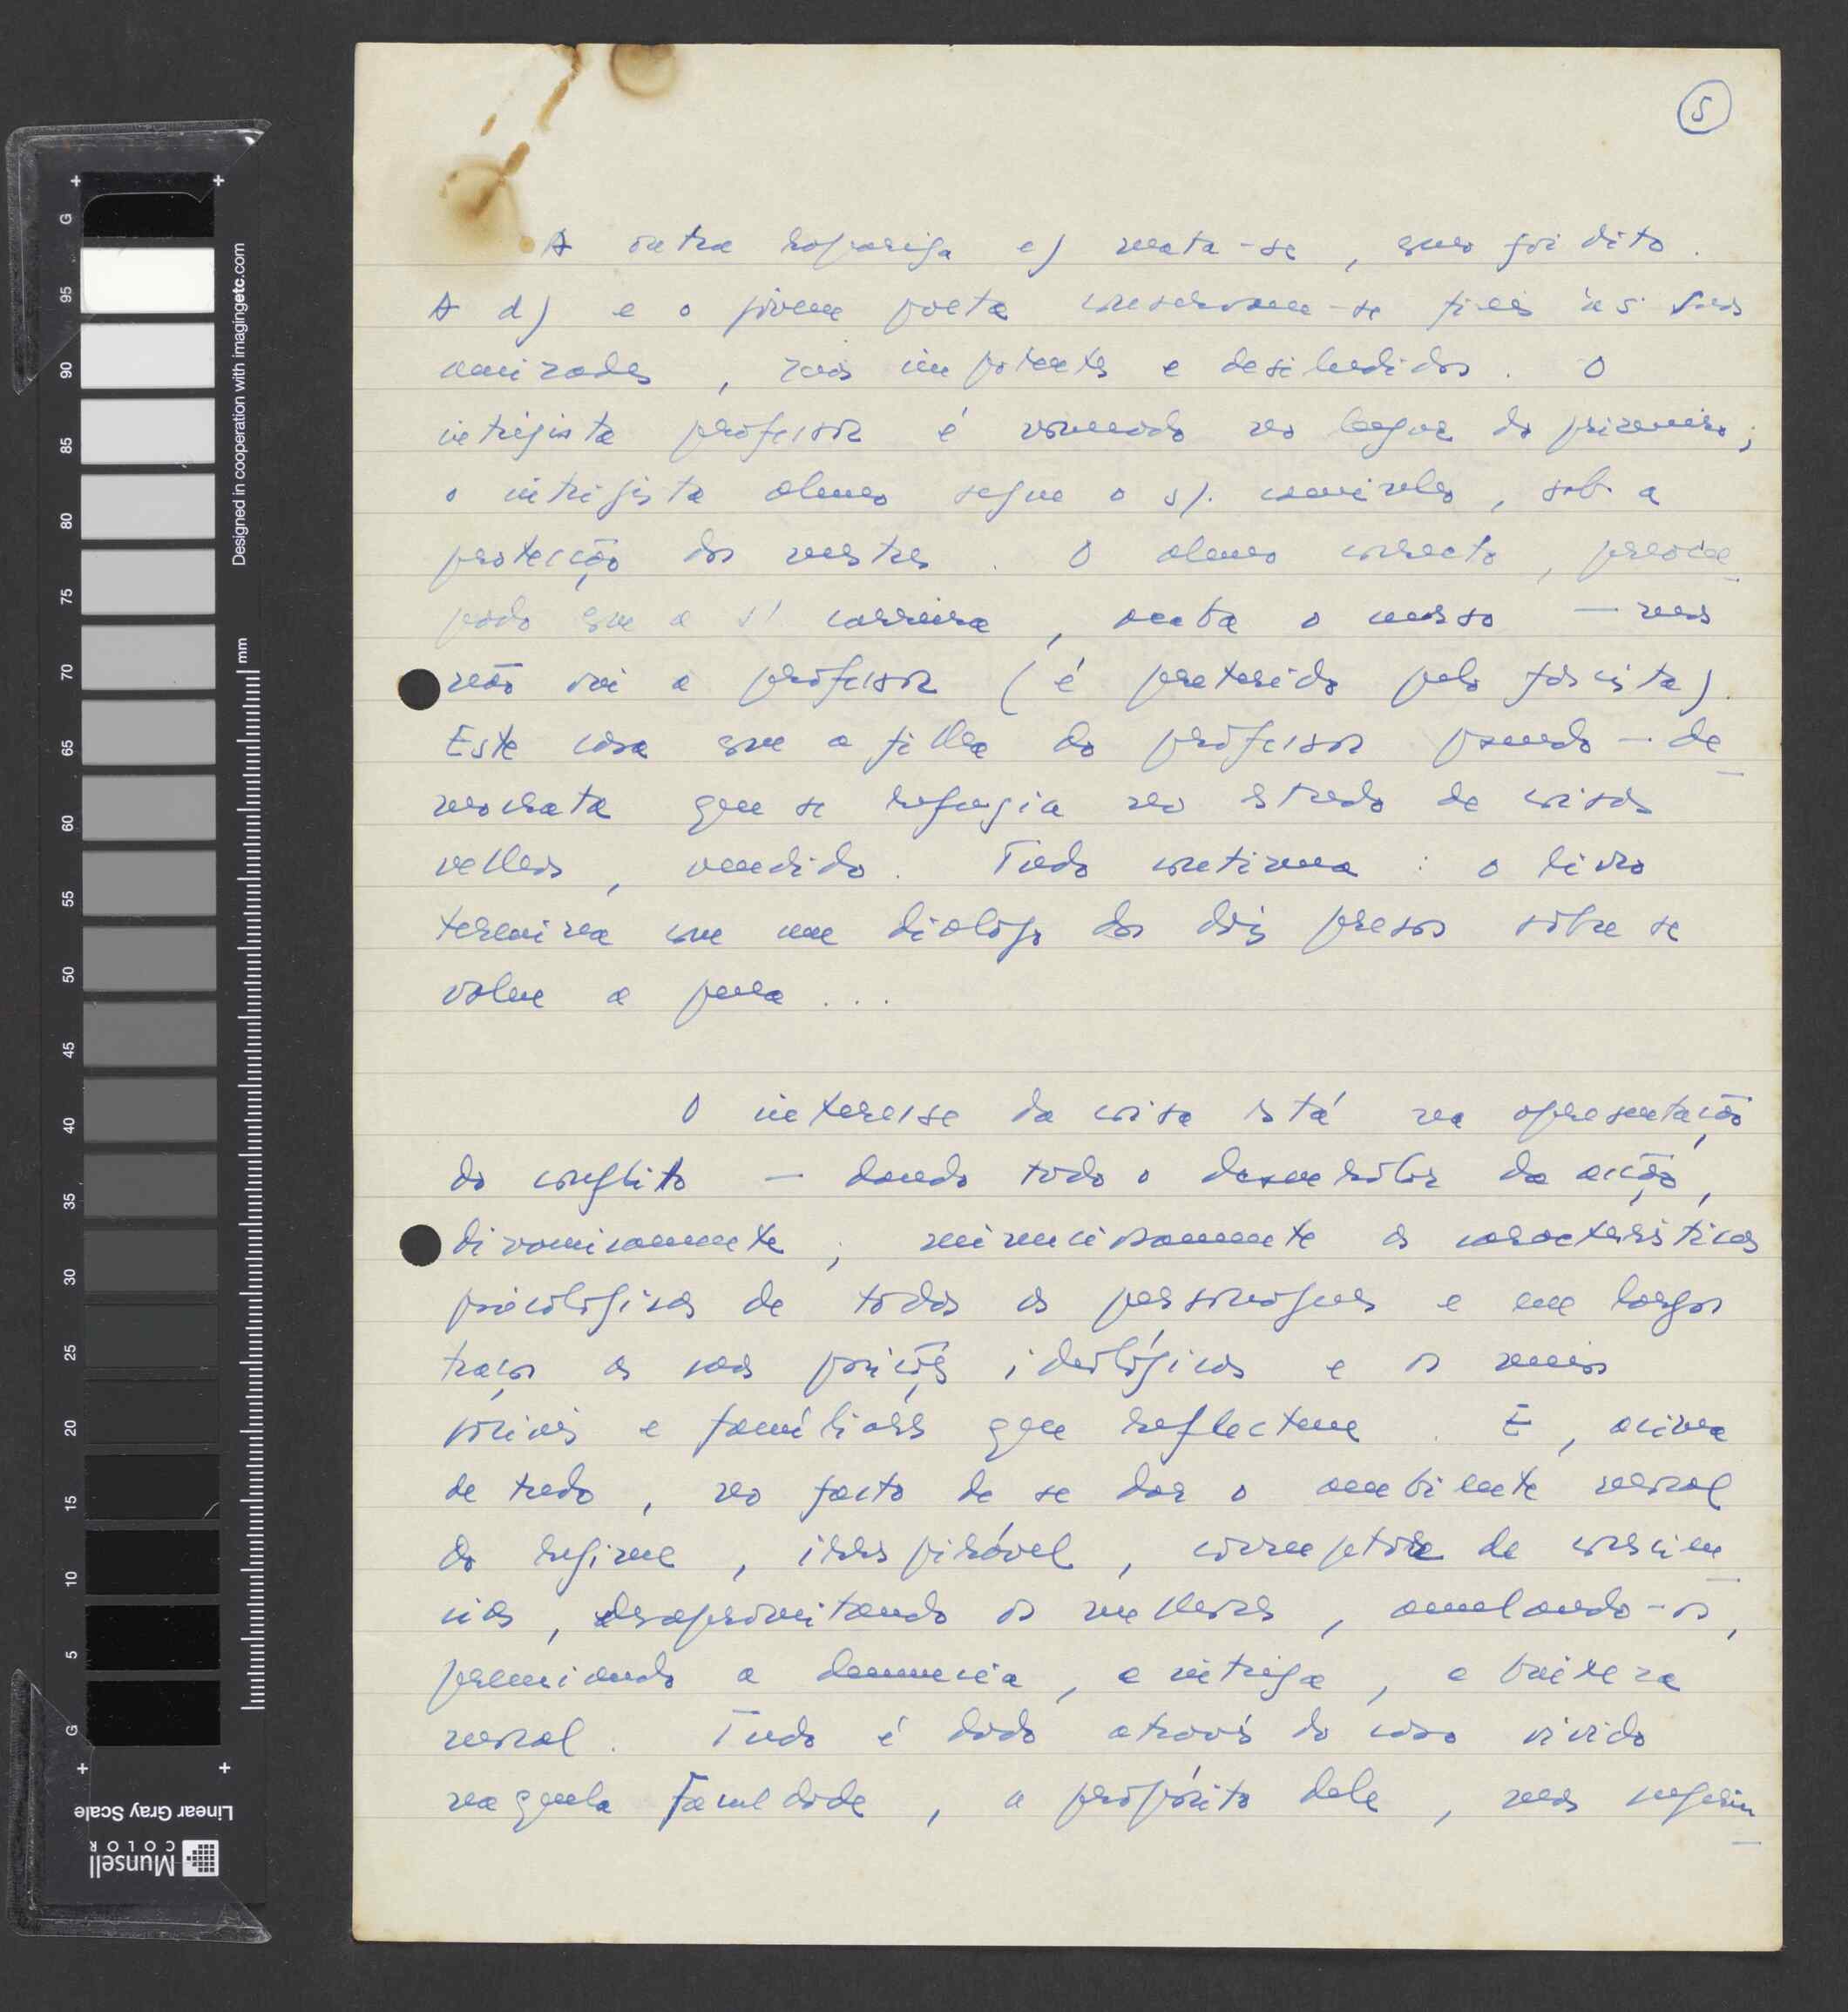 5
A outra rapariga e) mata-se, como foi dito.
A d) e o jovem poeta conservam-se fieis às suas
amizades, mas impotentes e desiludidos. O
intriguista professor é nomeado no lugar do primeiro;
o intriguista aluno segue o s/. caminho, sob a
protecção dos mestres. O aluno correcto, preocu
pado com a s/ carreira, acaba o curso — mas
não vai a professor (é preterido pelo fascista).
Este casa com a filha do professor pseudo-de
mocrata que se refugia no estudo de coisas
velhas, vendido. Tudo continua: o livro
termina com um diálogo dos dois presos sôbre se
valeu a pena...
O interesse da coisa está na apresentação
do conflito — dando todo o desenrolar da acção,
dinamicamente; minuciosamente as caracteristicas
psicológicas de todos os personagens e em largos
traços as suas posições ideológicas e os meios
sociais e familiares que reflectem. E, acima
de tudo, no facto de se dar o ambiente moral
do regime, irrespirável, corruptor de consciên
cias, desaproveitando os melhores, anulando-os,
premiando a denuncia, a intriga, a baixeza
moral. Tudo é dado através do caso vivido
naquela Faculdade, a propósito dele, mas sugerin
G
95
90
85
80
75
70
65
60
55
50
45
40
35
30
25
20
15
10
5
G
mm
Designed in cooperation with imagingetc.com
Linear Gray Scale
Munsell
COLOR